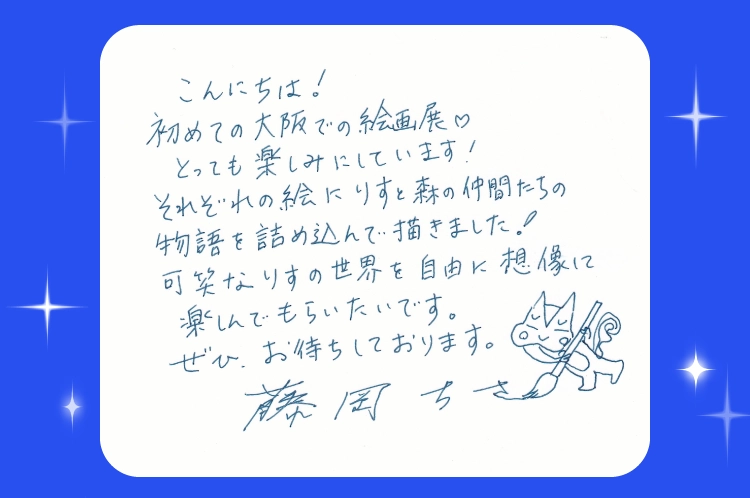 こんにちは!
初めての大阪での絵画展♡
とっても楽しみにしています!
それぞれの絵にりすと森の仲間たちの
物語を詰め込んで描きました!
可笑なりすの世界を自由に想像して
楽しんでもらいたいです。
ぜひ、お待ちしております。
藤岡ちさ